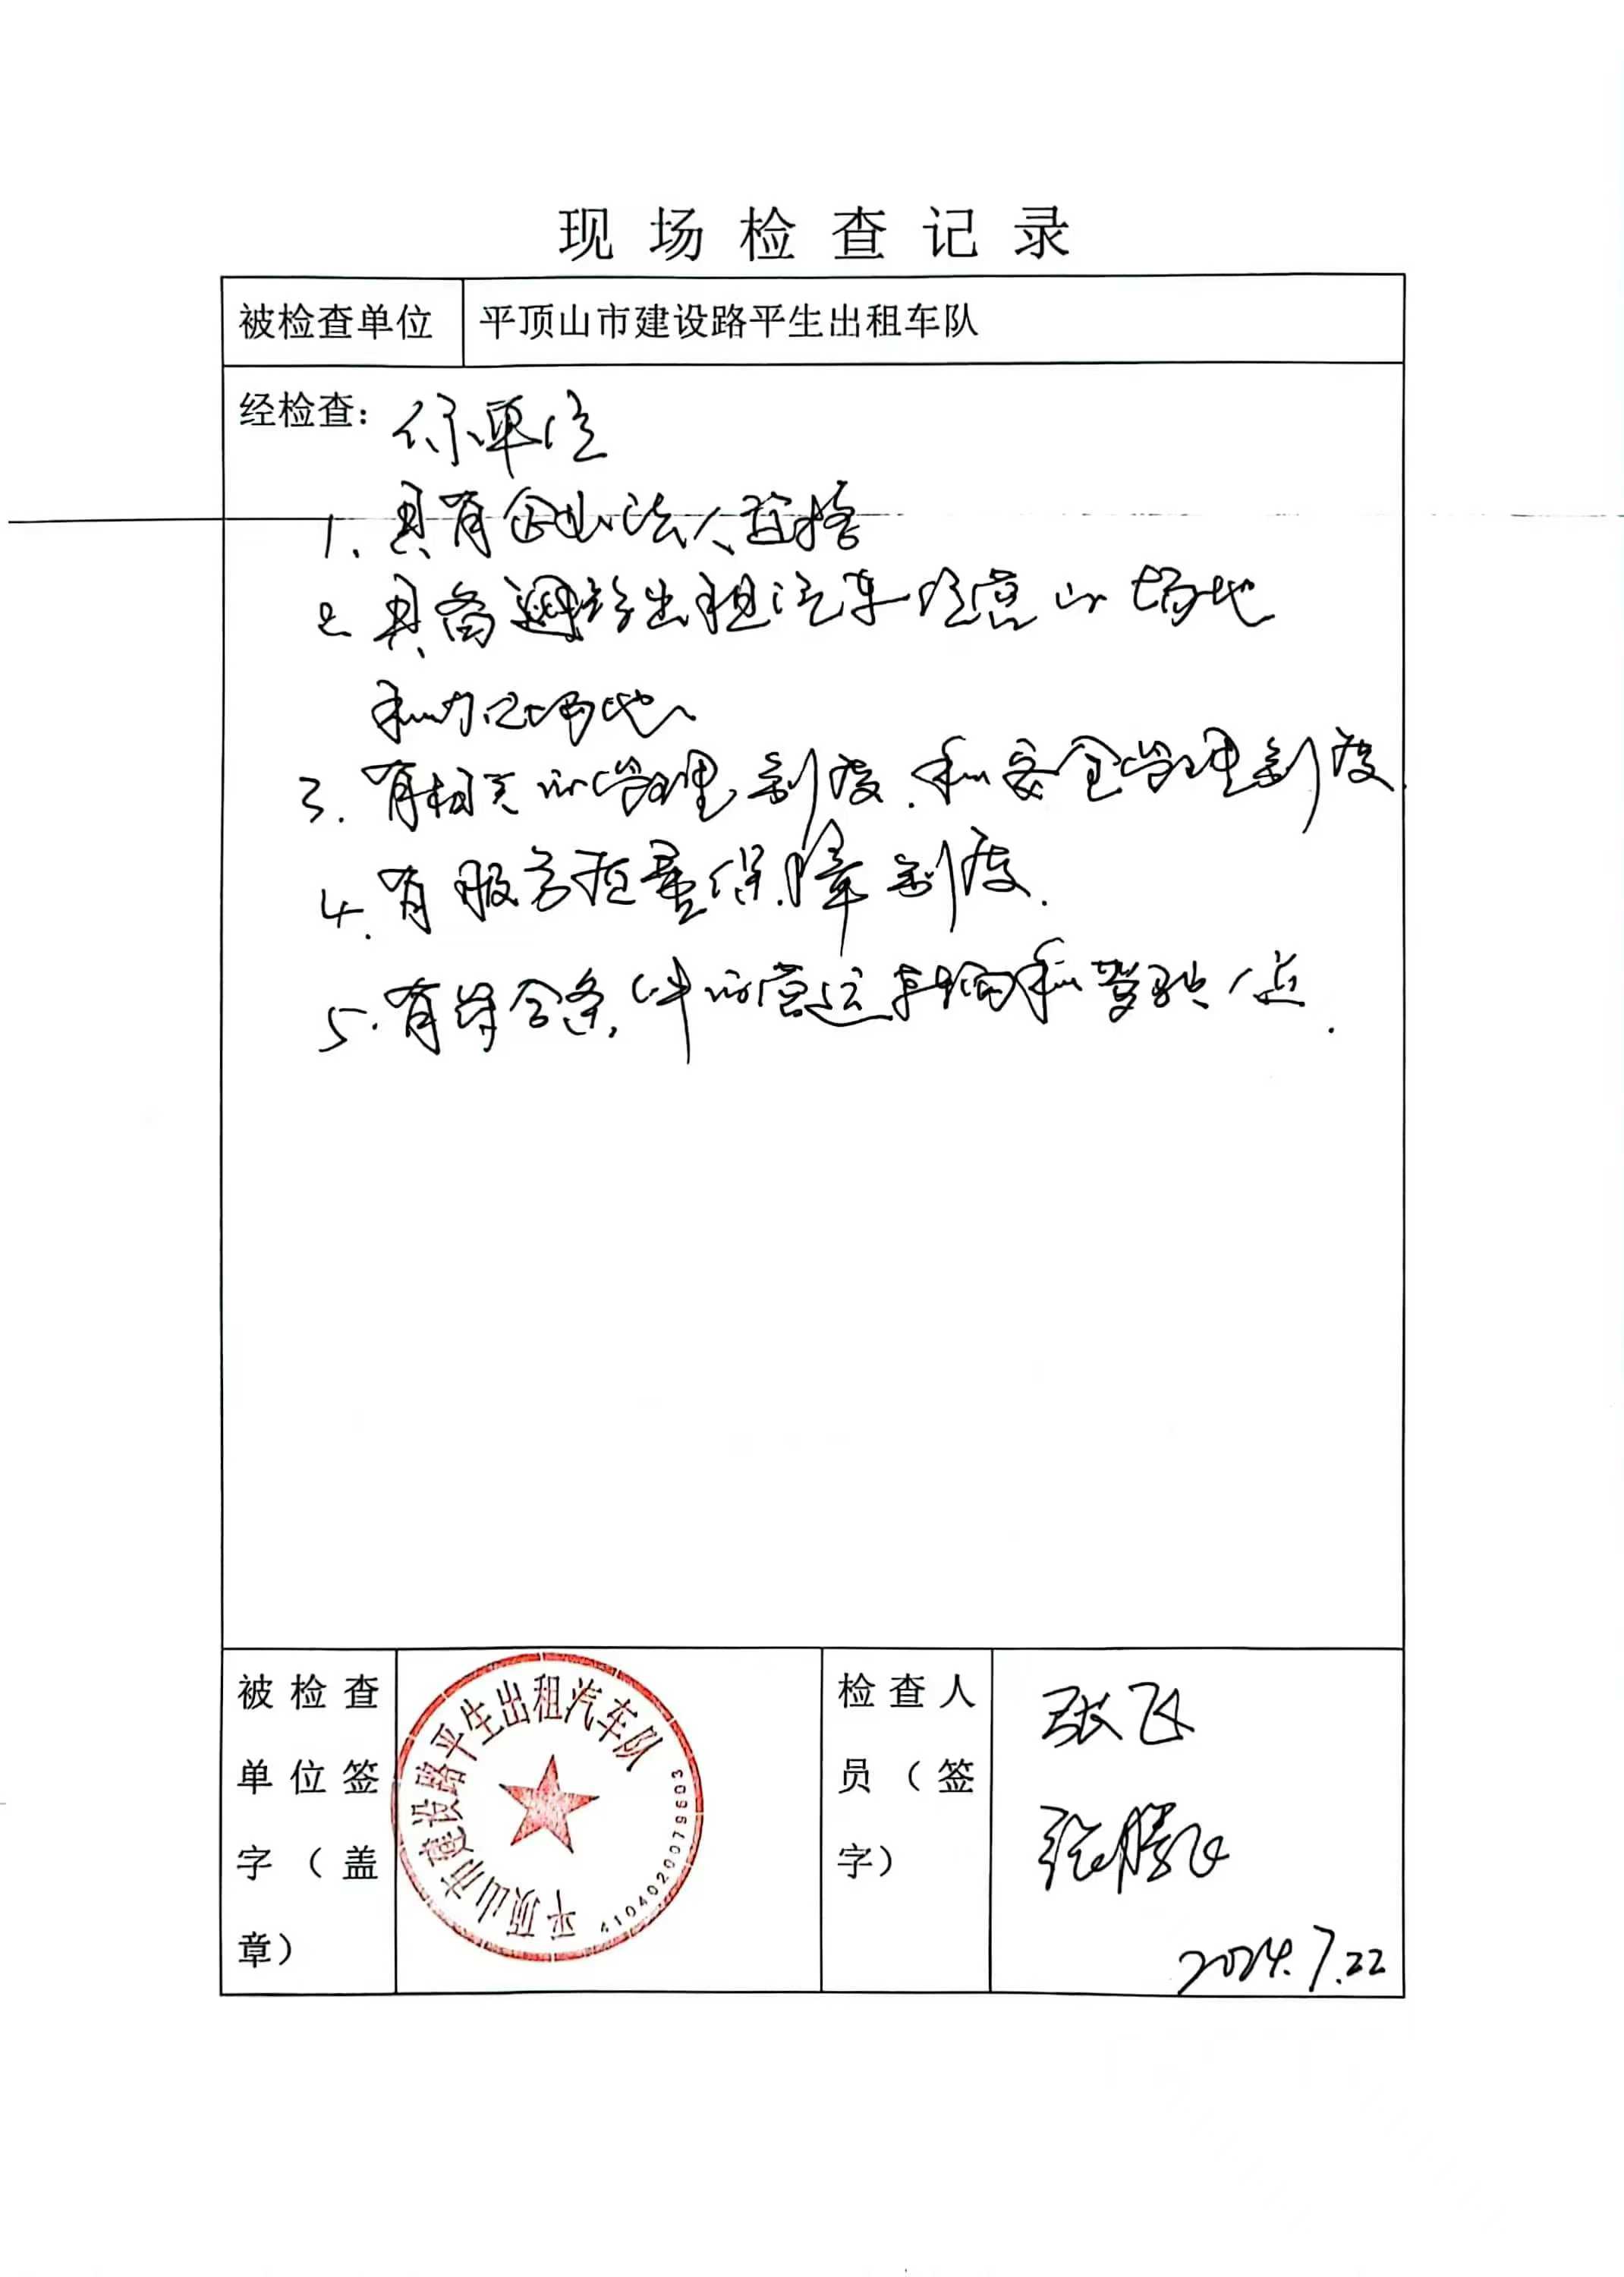 现场检查记录
被检查单位 平顶山市建设路平生出租车队
经检查: 你单位
1、具有企业法人资格
2、具备巡游出租汽车经营的场地
和办公场地、
3.有相关的管理制度.和安全管理制度.
4.有服务质量保障制度.
5.有符合条件的营运车辆和驾驶人员.
被检查
单位签
字(盖
章)
平顶山市建设路平生出租汽车队
4104020079603
检查人
员(签
字)
张飞
张腾飞
2024.7.22